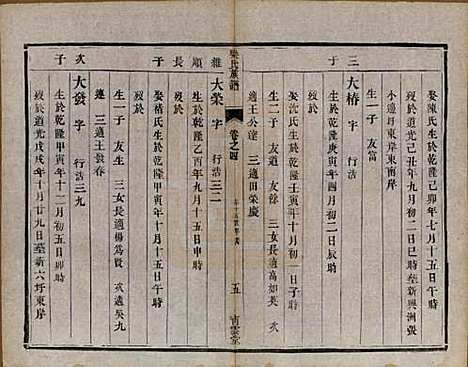 娶陳氏生於乾隆己卯年七月十五日午時
歿於道光己丑年九月初二日巳時墓新興洲萤
小邊坷東岸李南岸
生一子 友富
三 子
大椿 字 行浩
生於乾隆庚寅年四月初二日辰時
歿於
娶沈氏生於乾隆壬寅年十月初一日子時
生二子 友道 友餘 三女長適高如英 次
適王公達 三適田榮慶
氏族譜
卷之四
五
青雲堂
雅 順 長 子
大榮 字 行浩三二
生於乾隆乙酉年九月十五日申時
娶 氏生於乾隆甲寅年十月十五日
歿於
生一子 友生 三女長適楊為賢 次適吳九
遠 三適王景春
次 子
大發 字 行浩三九
生於乾隆甲寅年十二月初五日卯時
歿於道光戊戌年十月廿九日墓新六坷東岸